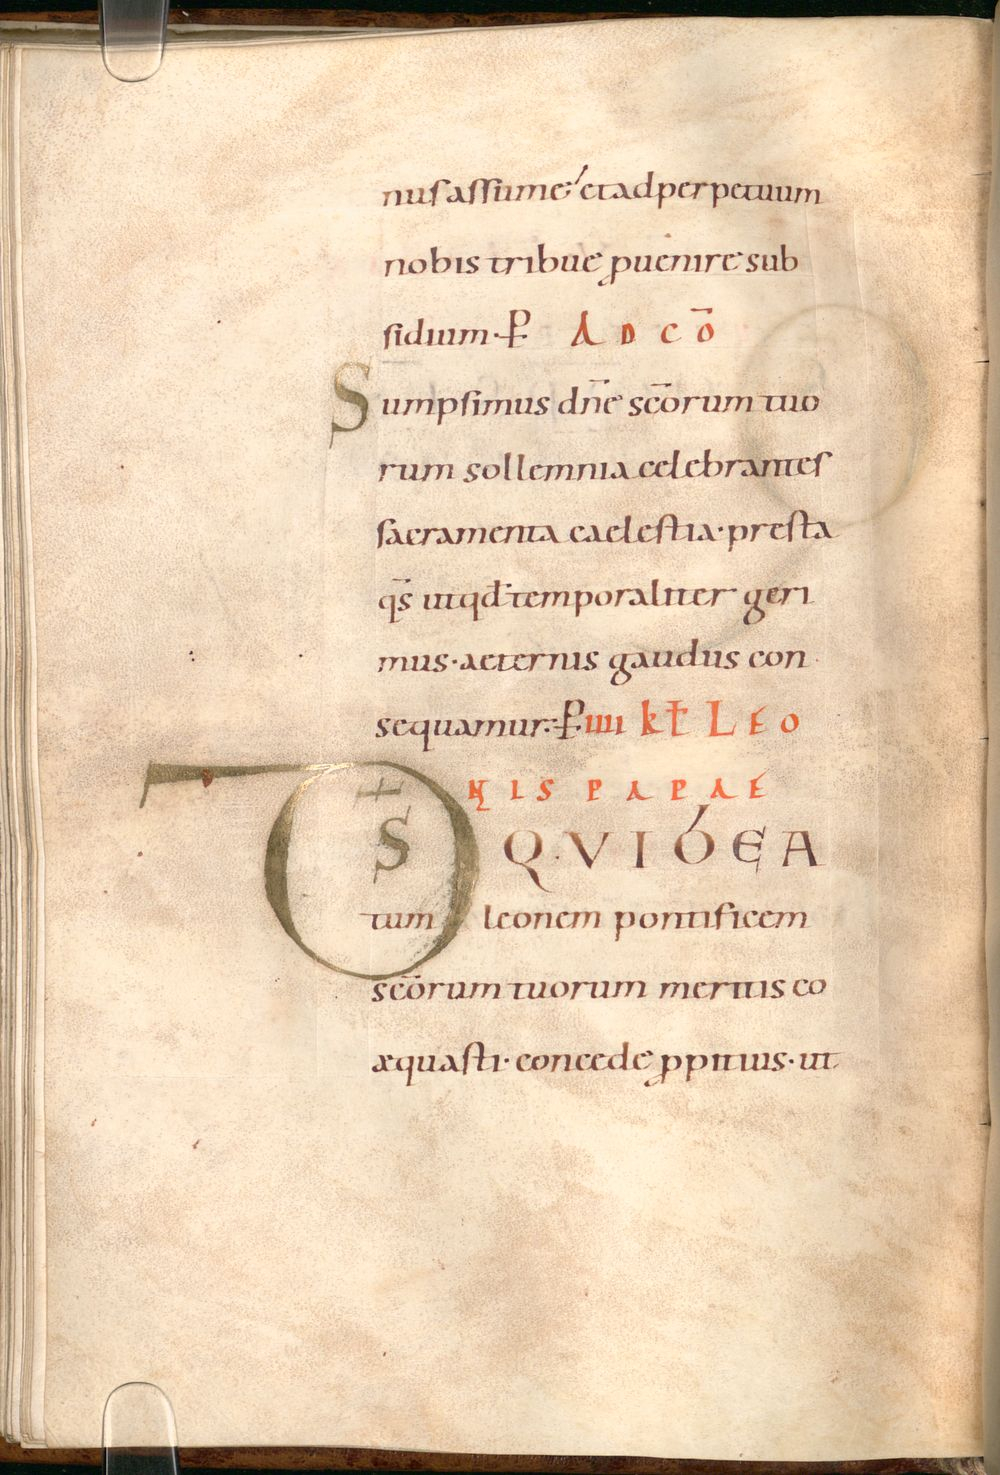 nus assume; et ad perpetuum
nobis tribue ꝓuenire sub
sidium· ꝑ AD CŌ
Sumpsimus dn̄e sc̄orum tuo
rum sollemnia celebrantes
sacramenta caelestia· presta
qs̄ ut qd̄ temporaliter geri
mus· aeternis gaudiis con
sequamur·: ꝑ IIII kł LEO
NIS PAPAE
DS̄ QVI BEA
tum leonem pontificem
sc̄orum tuorum meritis co
æquasti· concede ꝓpitius· ut